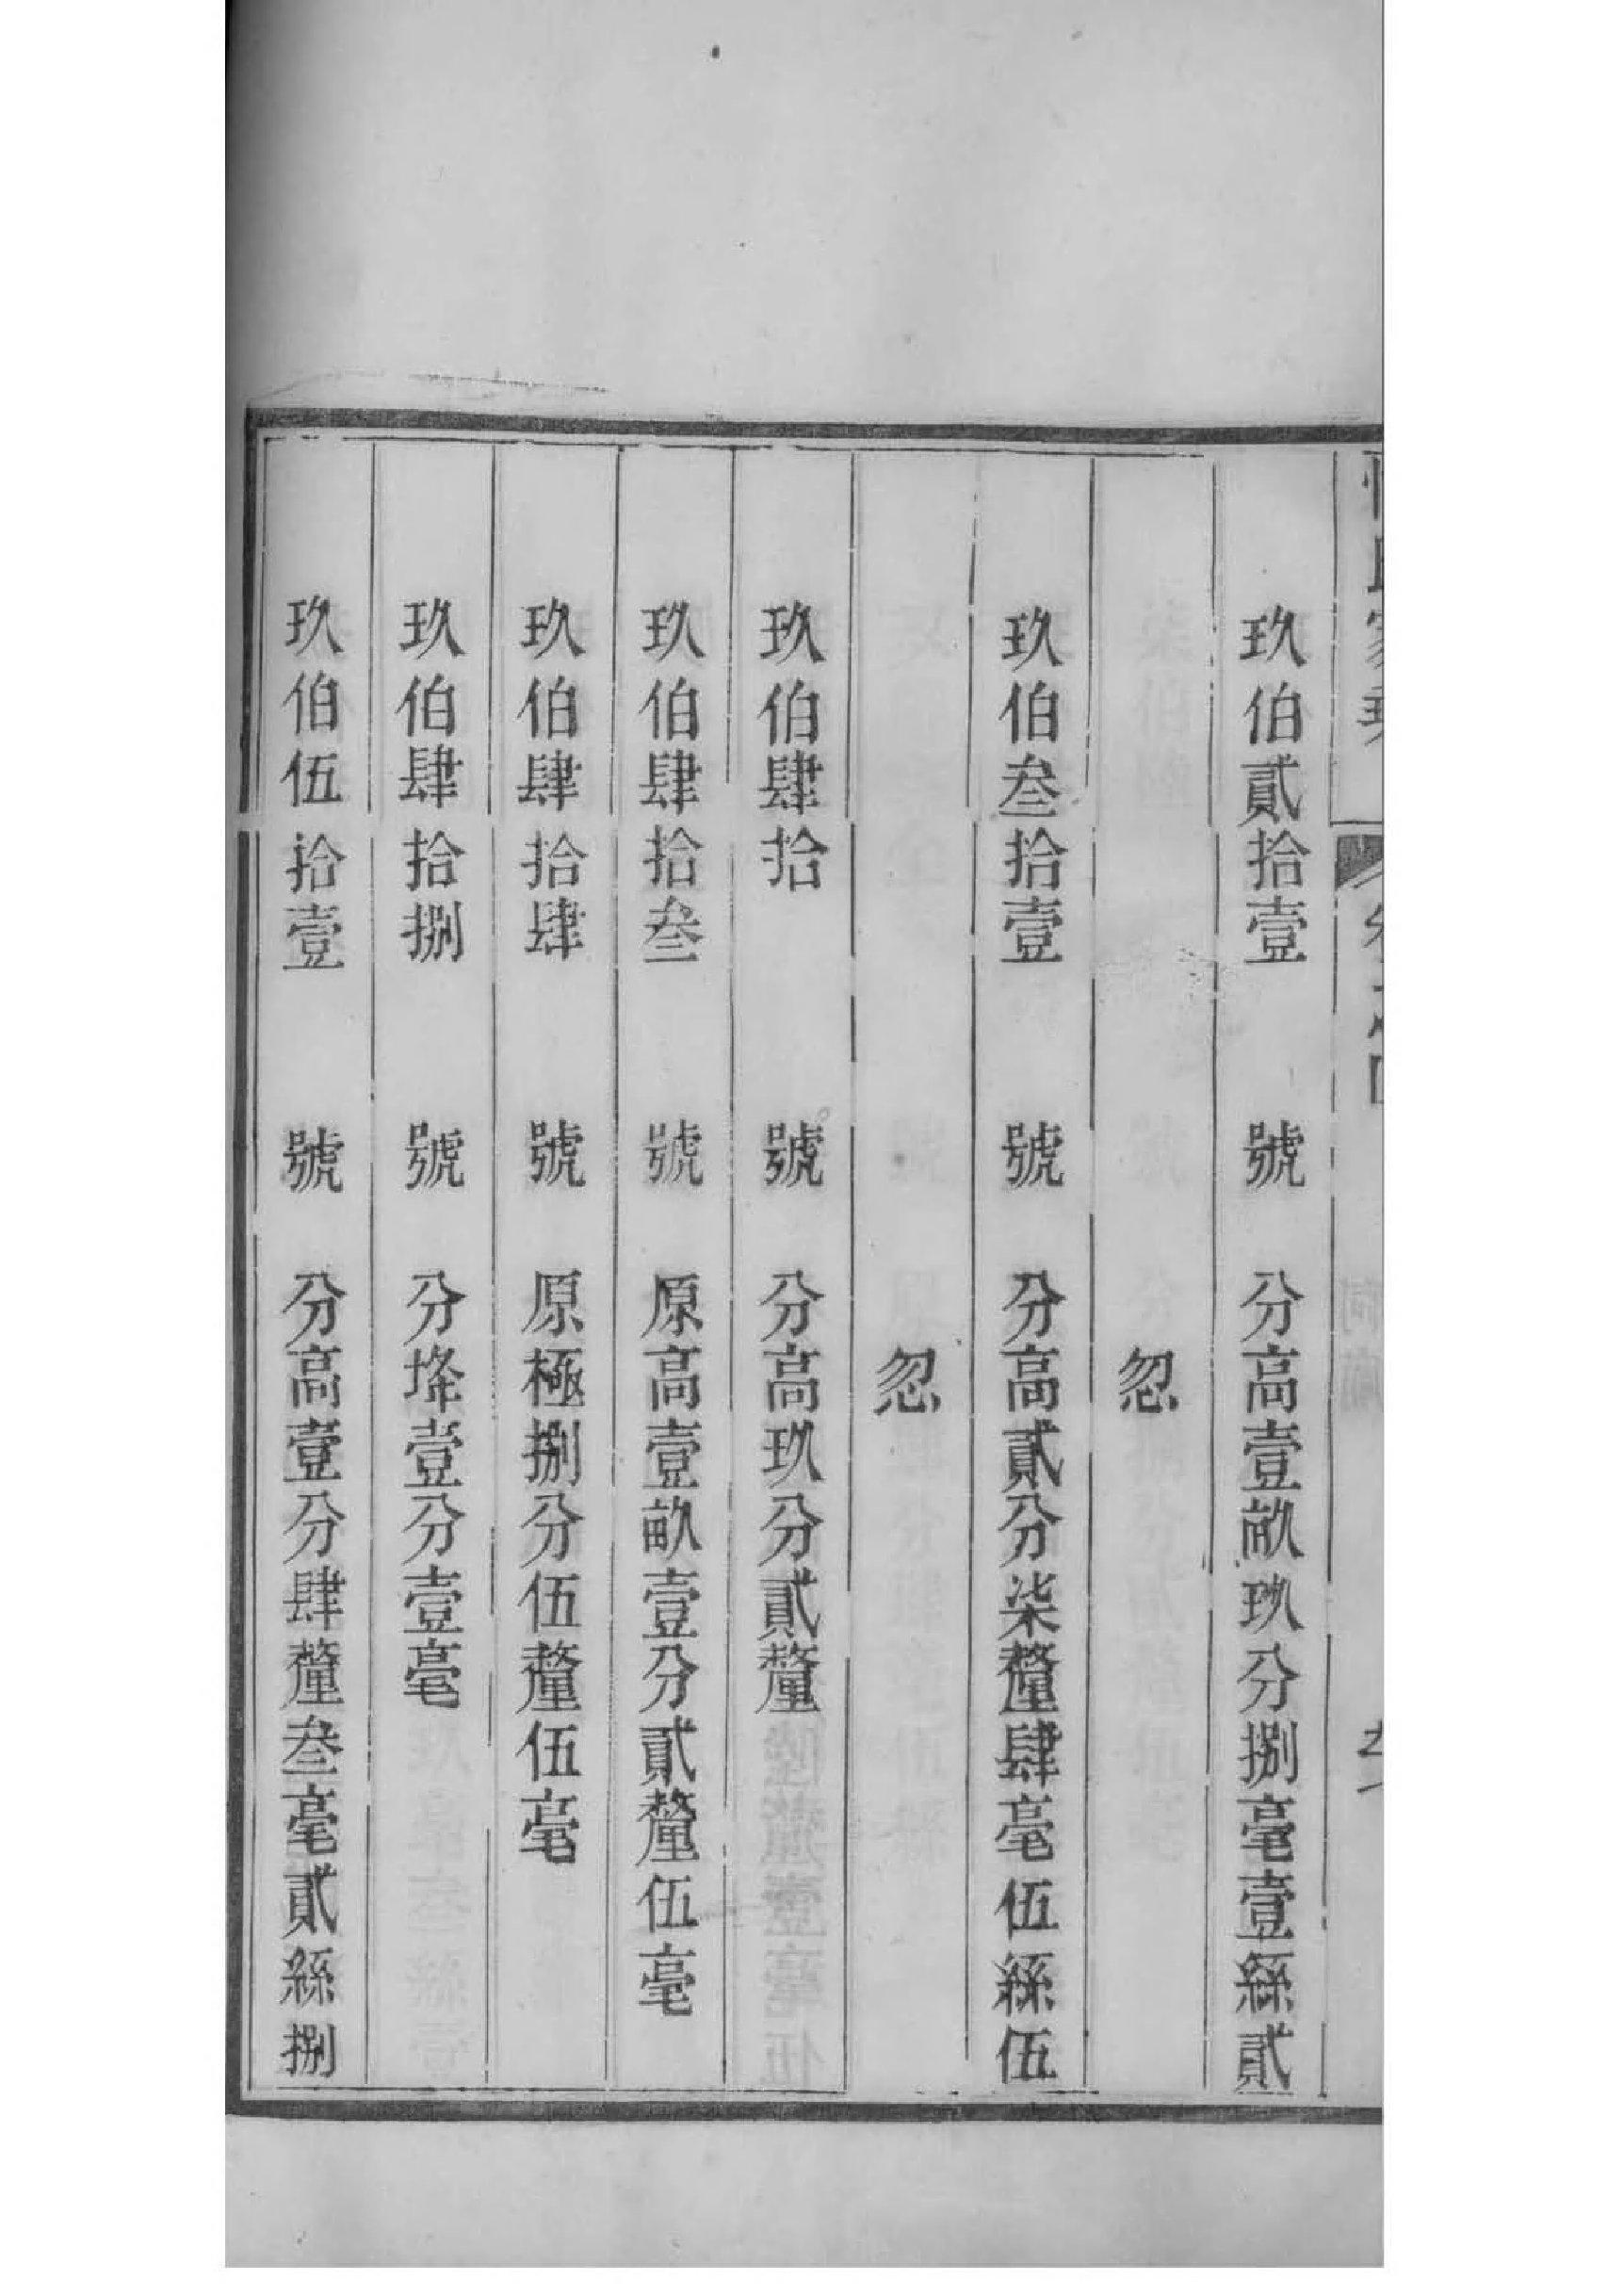 玖伯貳拾壹　號　分高壹畝玖分捌毫壹絲貳
忽
玖伯叁拾壹　號　分高貳分柒釐肆毫伍絲伍
忽
玖伯肆拾　號　分高玖分貳釐
玖伯肆拾叁　號　原高壹畝壹分貳釐伍毫
玖伯肆拾肆　號　原極捌分伍釐伍毫
玖伯肆拾捌　號　分埄壹分壹毫
玖伯伍拾壹　號　分高壹分肆釐叁毫貳絲捌